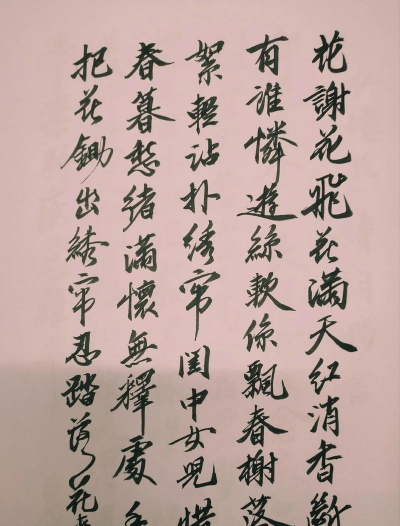 花謝花飛花滿天紅消香斷
有誰憐遊絲軟係飄春榭落
絮輕沾扑綉帘闺中女兒惜
春暮愁緒滿懷無釋處手
把花鋤出綉帘忍踏落花